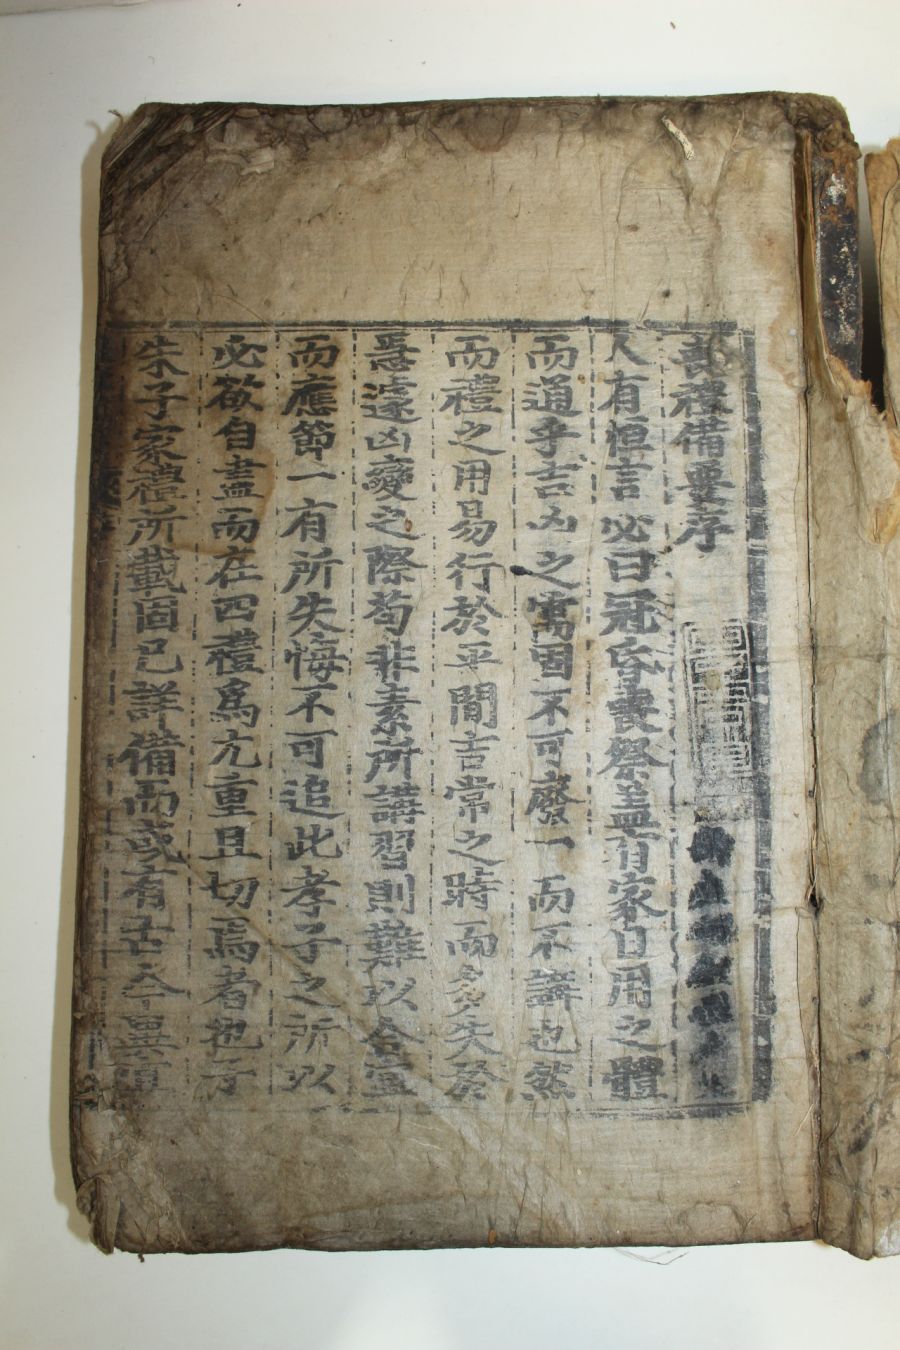 喪禮備要序
人有恒言必曰冠昏喪祭盖有家日用之體
而通乎吉凶之事固不可廢一而不講也然
而禮之用易行於平閒吉常之時而多失於
急遽凶變之際苟非素所講習則難以合宜
而應節一有所失悔不可追此孝子之所以
必欲自盡而在四禮爲尤重且切焉者也
朱子家禮所載固已詳備而或有古今異宜